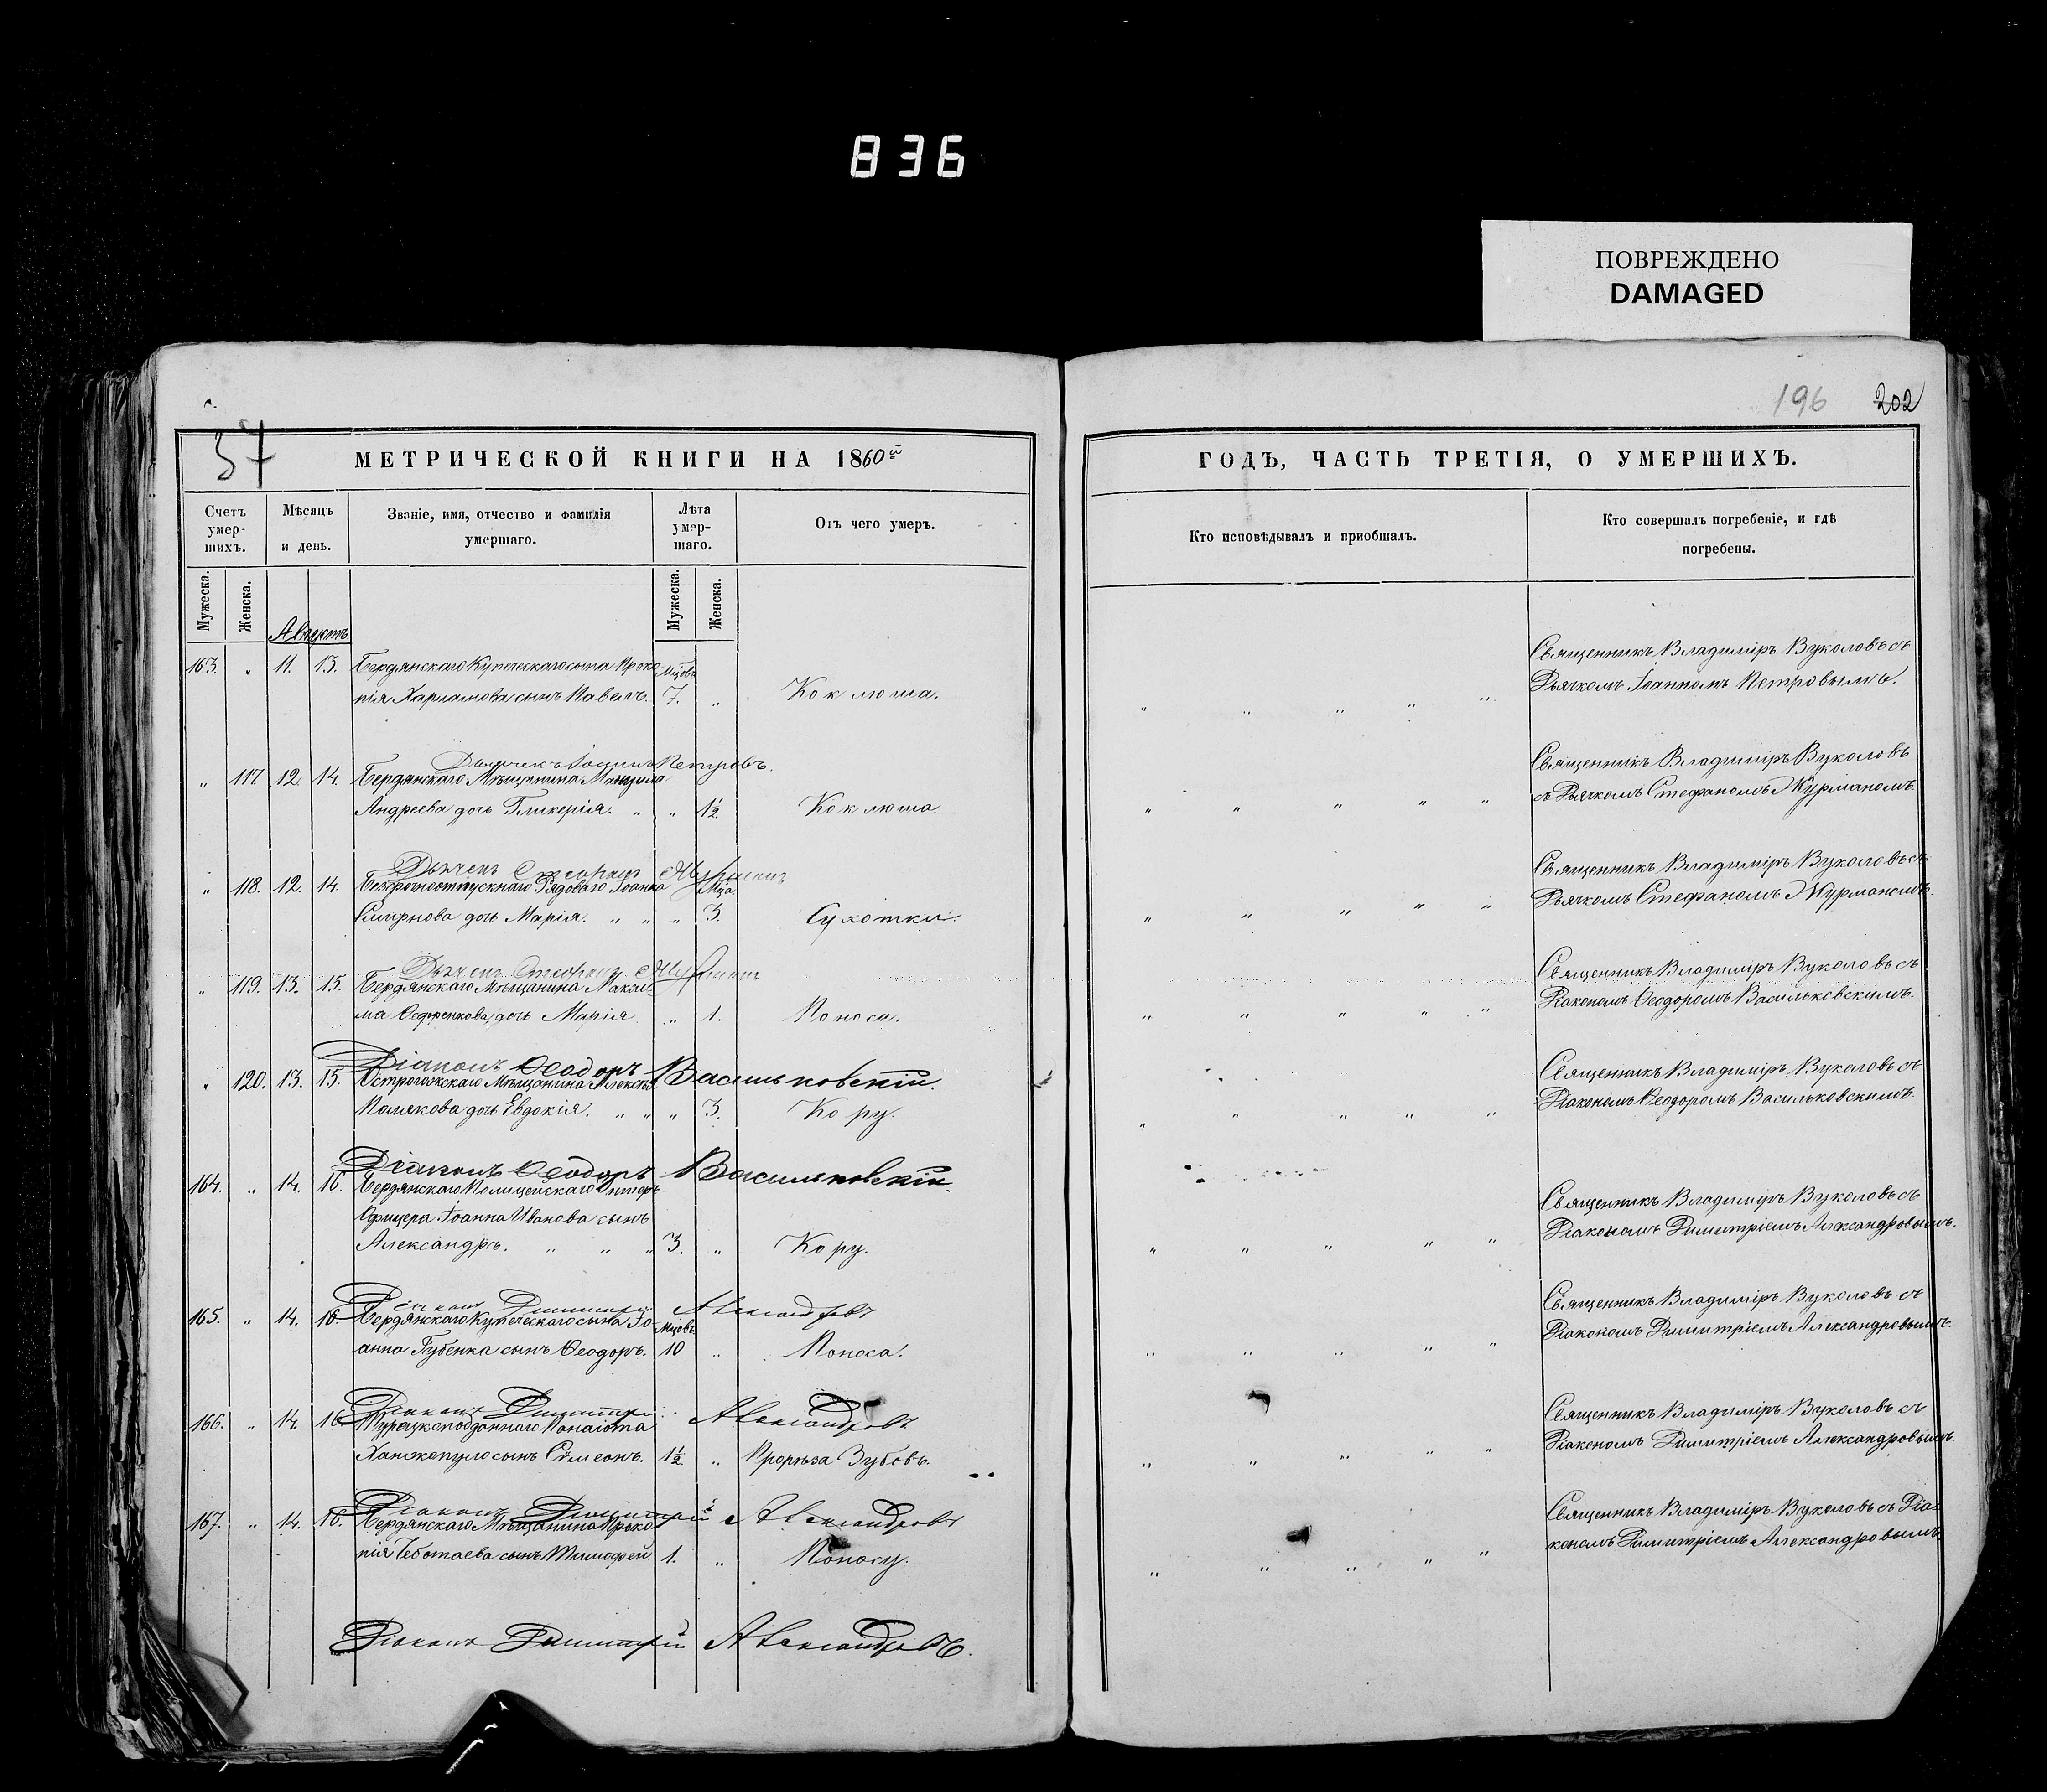 836
ПОВРЕЖДЕНО
DAMAGED
196 202
57
МЕТРИЧЕСКОЙ КНИГИ НА 1860й
ГОДЪ, ЧАСТЬ ТРЕТІЯ, О УМЕРШИХЪ.
Счетъ умер-шихъ.
Мѣсяцъ и день.
Званіе, имя, отчество и фамилія умершаго.
Лѣта умер-шаго.
Отъ чего умеръ.
Кто исповѣдывалъ и приобщалъ.
Кто совершалъ погребеніе, и гдѣ погребены.
Мужеска. Женска. Мужеска. Женска.
Августъ
163. „ 11. 13. Бердянскаго Купеческаго сына Проко Мцовъ
пія Харламова сынъ Павелъ. 7. „ Коклюша.
Священникъ Владиміръ Вуколовъ съ
Дьячкомъ Іоанномъ Петровымъ.
Дьячекъ Іоаннъ Петровъ.
„ 117 12 14. Бердянскаго Мѣщанина
Андреева дочь Гликерія. „ „ 1½. Коклюша.
Священникъ Владиміръ Вуколовъ
съ Дьячкомъ Стефаномъ Журманомъ.
Дьячекъ Стефанъ Журманъ
„ 118. 12. 14. Безсрочноотпускнаго Рядоваго Іоанна Мца.
Смирнова дочь Марія. „ „ „ 3. Сухотки.
Священникъ Владиміръ Вуколовъ съ
Дьячкомъ Стефаномъ Журманомъ.
Дьячекъ Стефанъ Журманъ
„ 119. 13. 15. Бердянскаго Мѣщанина Макси
ма дочь Марія „ 1. Поноса.
Священникъ Владиміръ Вуколовъ съ
Діакономъ Ѳеодоромъ Васильковскимъ.
Діаконъ Ѳеодоръ Васильковскій.
„ 120. 13. 15. Острогожскаго Мѣщанина Алексѣя
Полякова дочь Евдокія. „ „ „ 3. Кору.
Священникъ Владиміръ Вуколовъ съ
Діакономъ Ѳеодоромъ Васильковскимъ.
Діаконъ Ѳеодоръ Васильковскій.
164. „ 14. 16. Бердянскаго Полицейскаго Унтеръ
Офицера Іоанна Иванова сынъ
Александръ. „ „ „ 3. „ Кору.
Священникъ Владиміръ Вуколовъ съ
Діакономъ Димитріемъ Александровымъ.
Діаконъ Димитрій Александровъ
165. „ 14. 16. Бердянскаго Купеческаго сына Іо Мцовъ
анна Губенка сынъ Ѳеодоръ. 10 „ Поноса.
Священникъ Владиміръ Вуколовъ съ
Діакономъ Димитріемъ Александровымъ.
Діаконъ Димитрій Александровъ
166. „ 14. 16. Турецкоподданнаго Панаіота
сынъ Сѵмеонъ. 1½. „ Прорѣза Зубовъ.
Священникъ Владиміръ Вуколовъ съ
Діакономъ Димитріемъ Александровымъ.
Діаконъ Димитрій Александровъ
167. „ 14. 16. Бердянскаго Мѣщанина Проко
пія Чеботаева сынъ Тимофей 1. „ Поносу.
Священникъ Владиміръ Вуколовъ съ Діа
кономъ Димитріемъ Александровымъ.
Діаконъ Димитрій Александровъ.